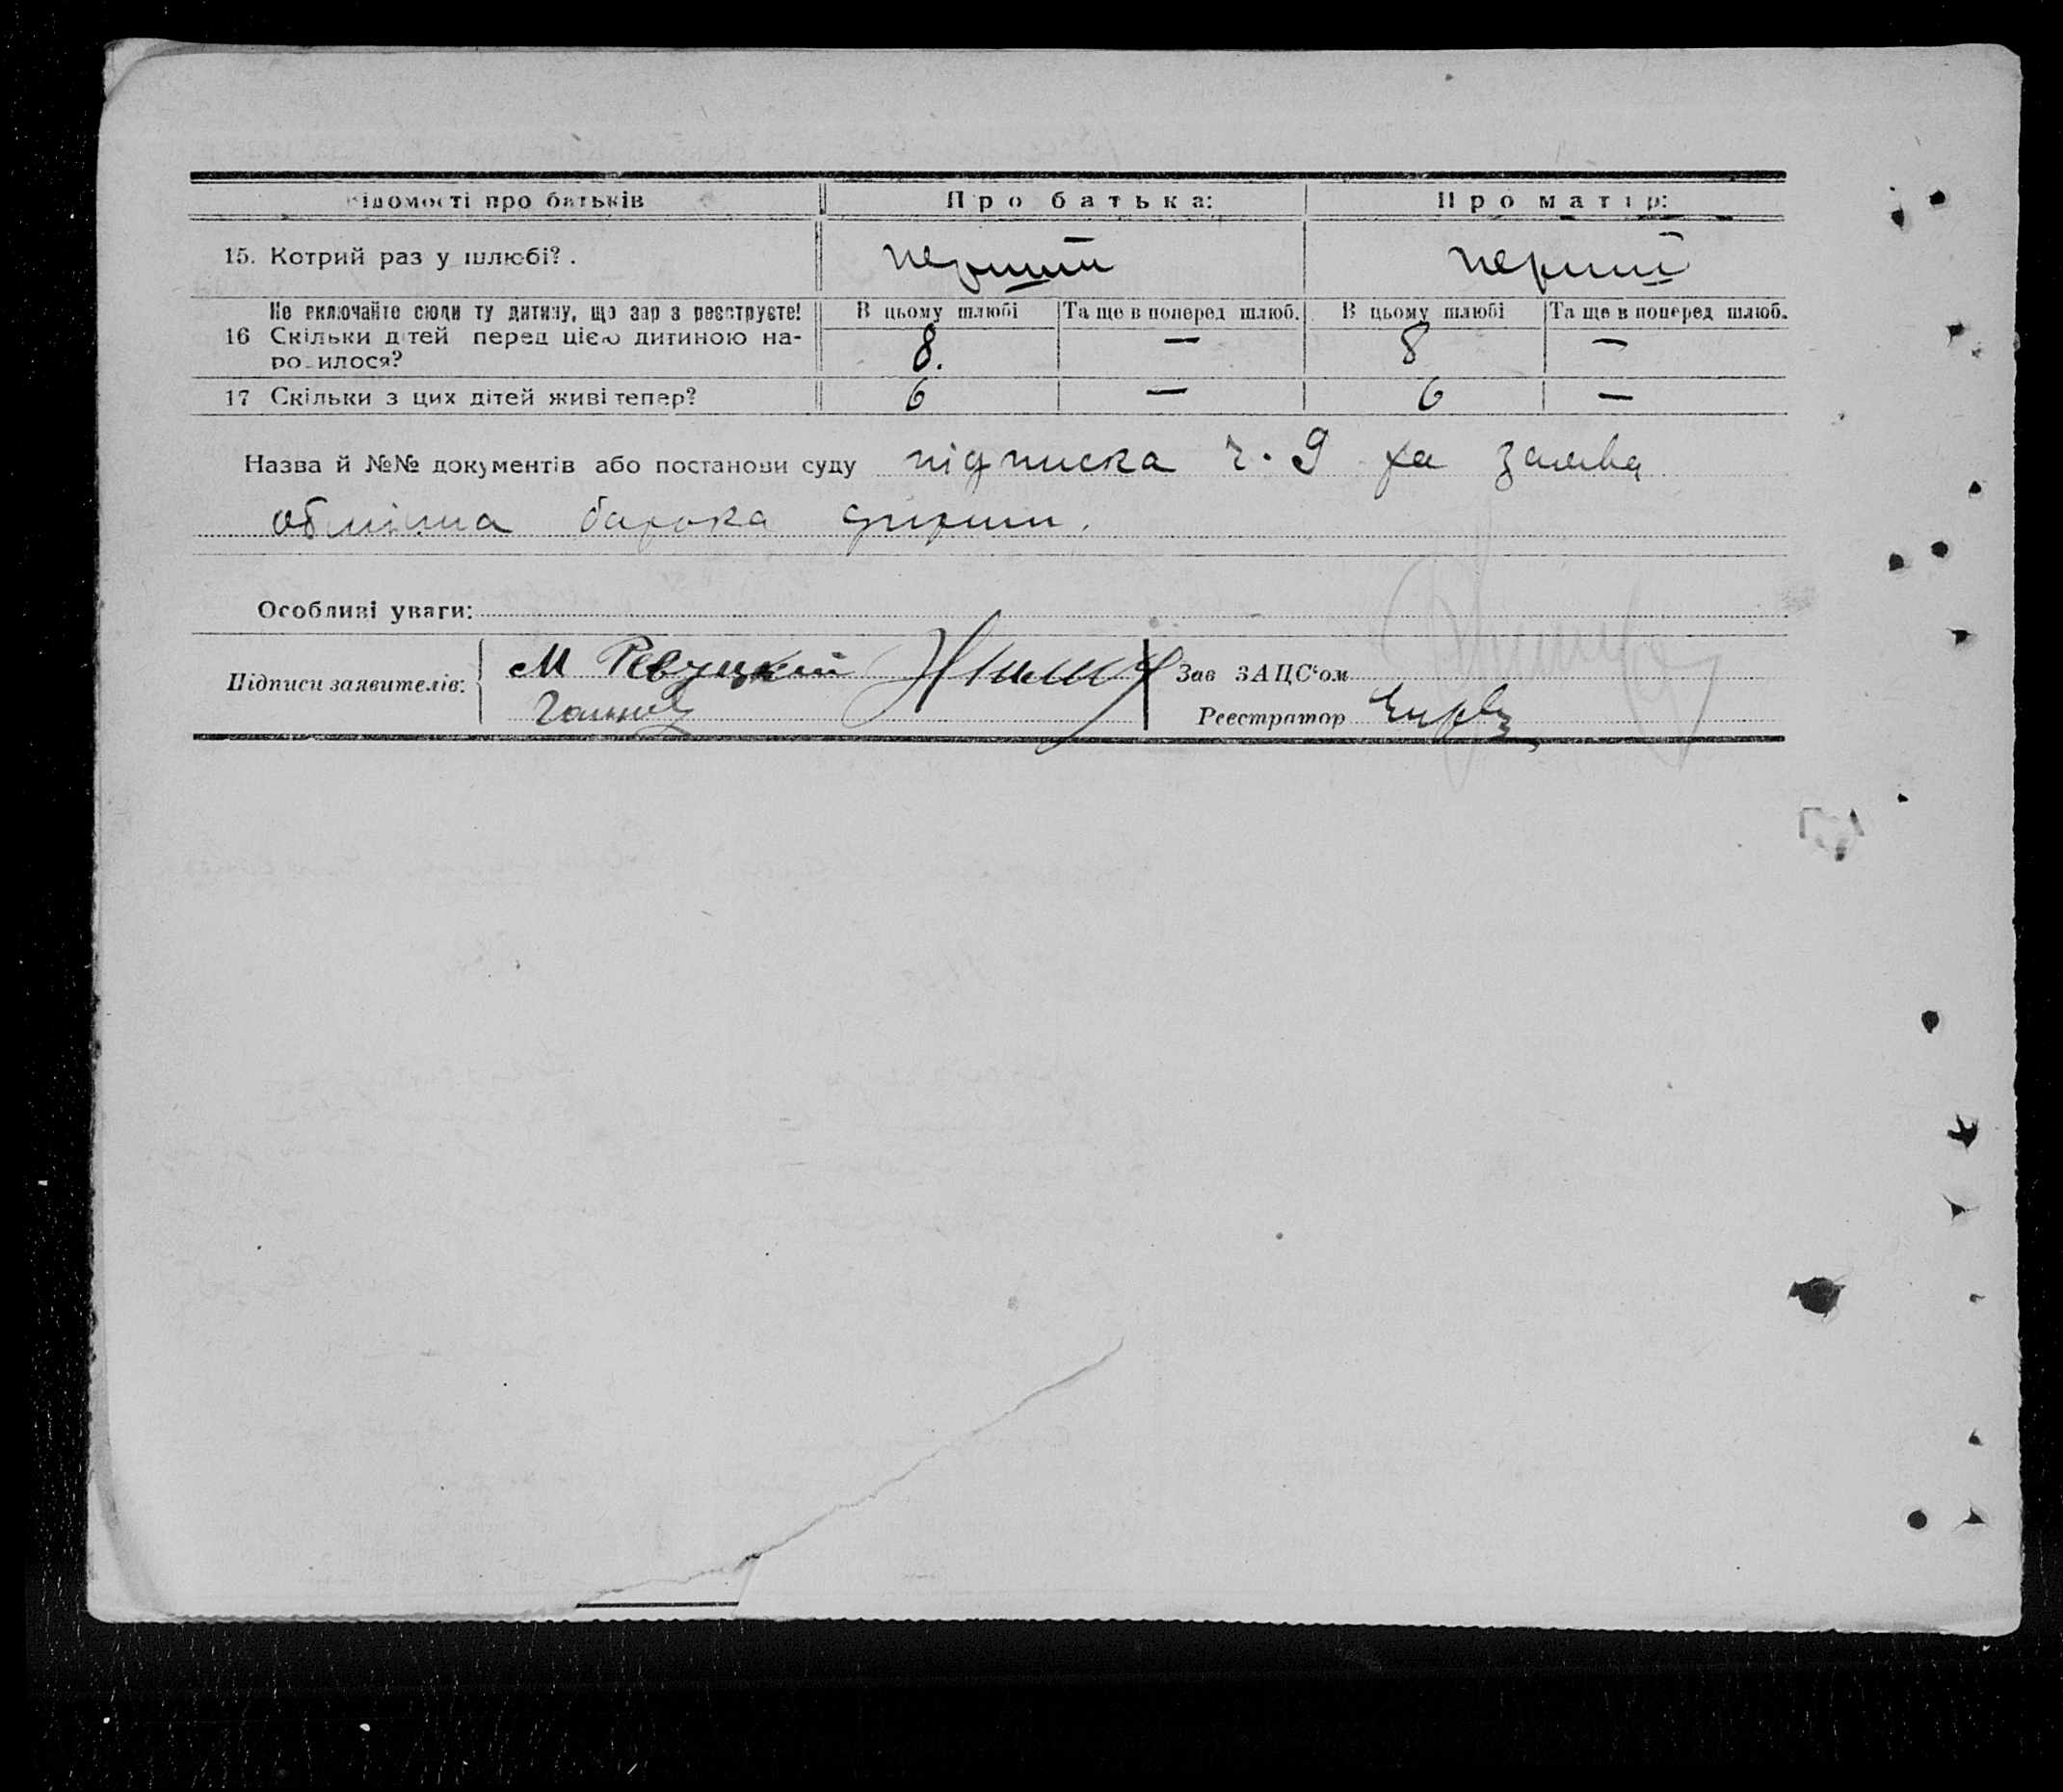 ідомості про батьків Про батька: Про матір:
15. Котрий раз у шлюбі? . перший перший
Не включайте сюди ту дитину, що зар з реєструєте! В цьому шлюбі Та ще в поперед шлюб. В цьому шлюбі Та ще в поперед шлюб.
16 Скільки дітей перед цією дитиною на- 8. — 8 —
ро илося?
17 Скільки з цих дітей живі тепер? 6 — 6 —
Назва й №№ документів або постанови суду підписка ч. 9 та заява
Особливі уваги:
Підписи заявителів: М Ревуцкий Зав ЗАЦС'ом
Реєстратор